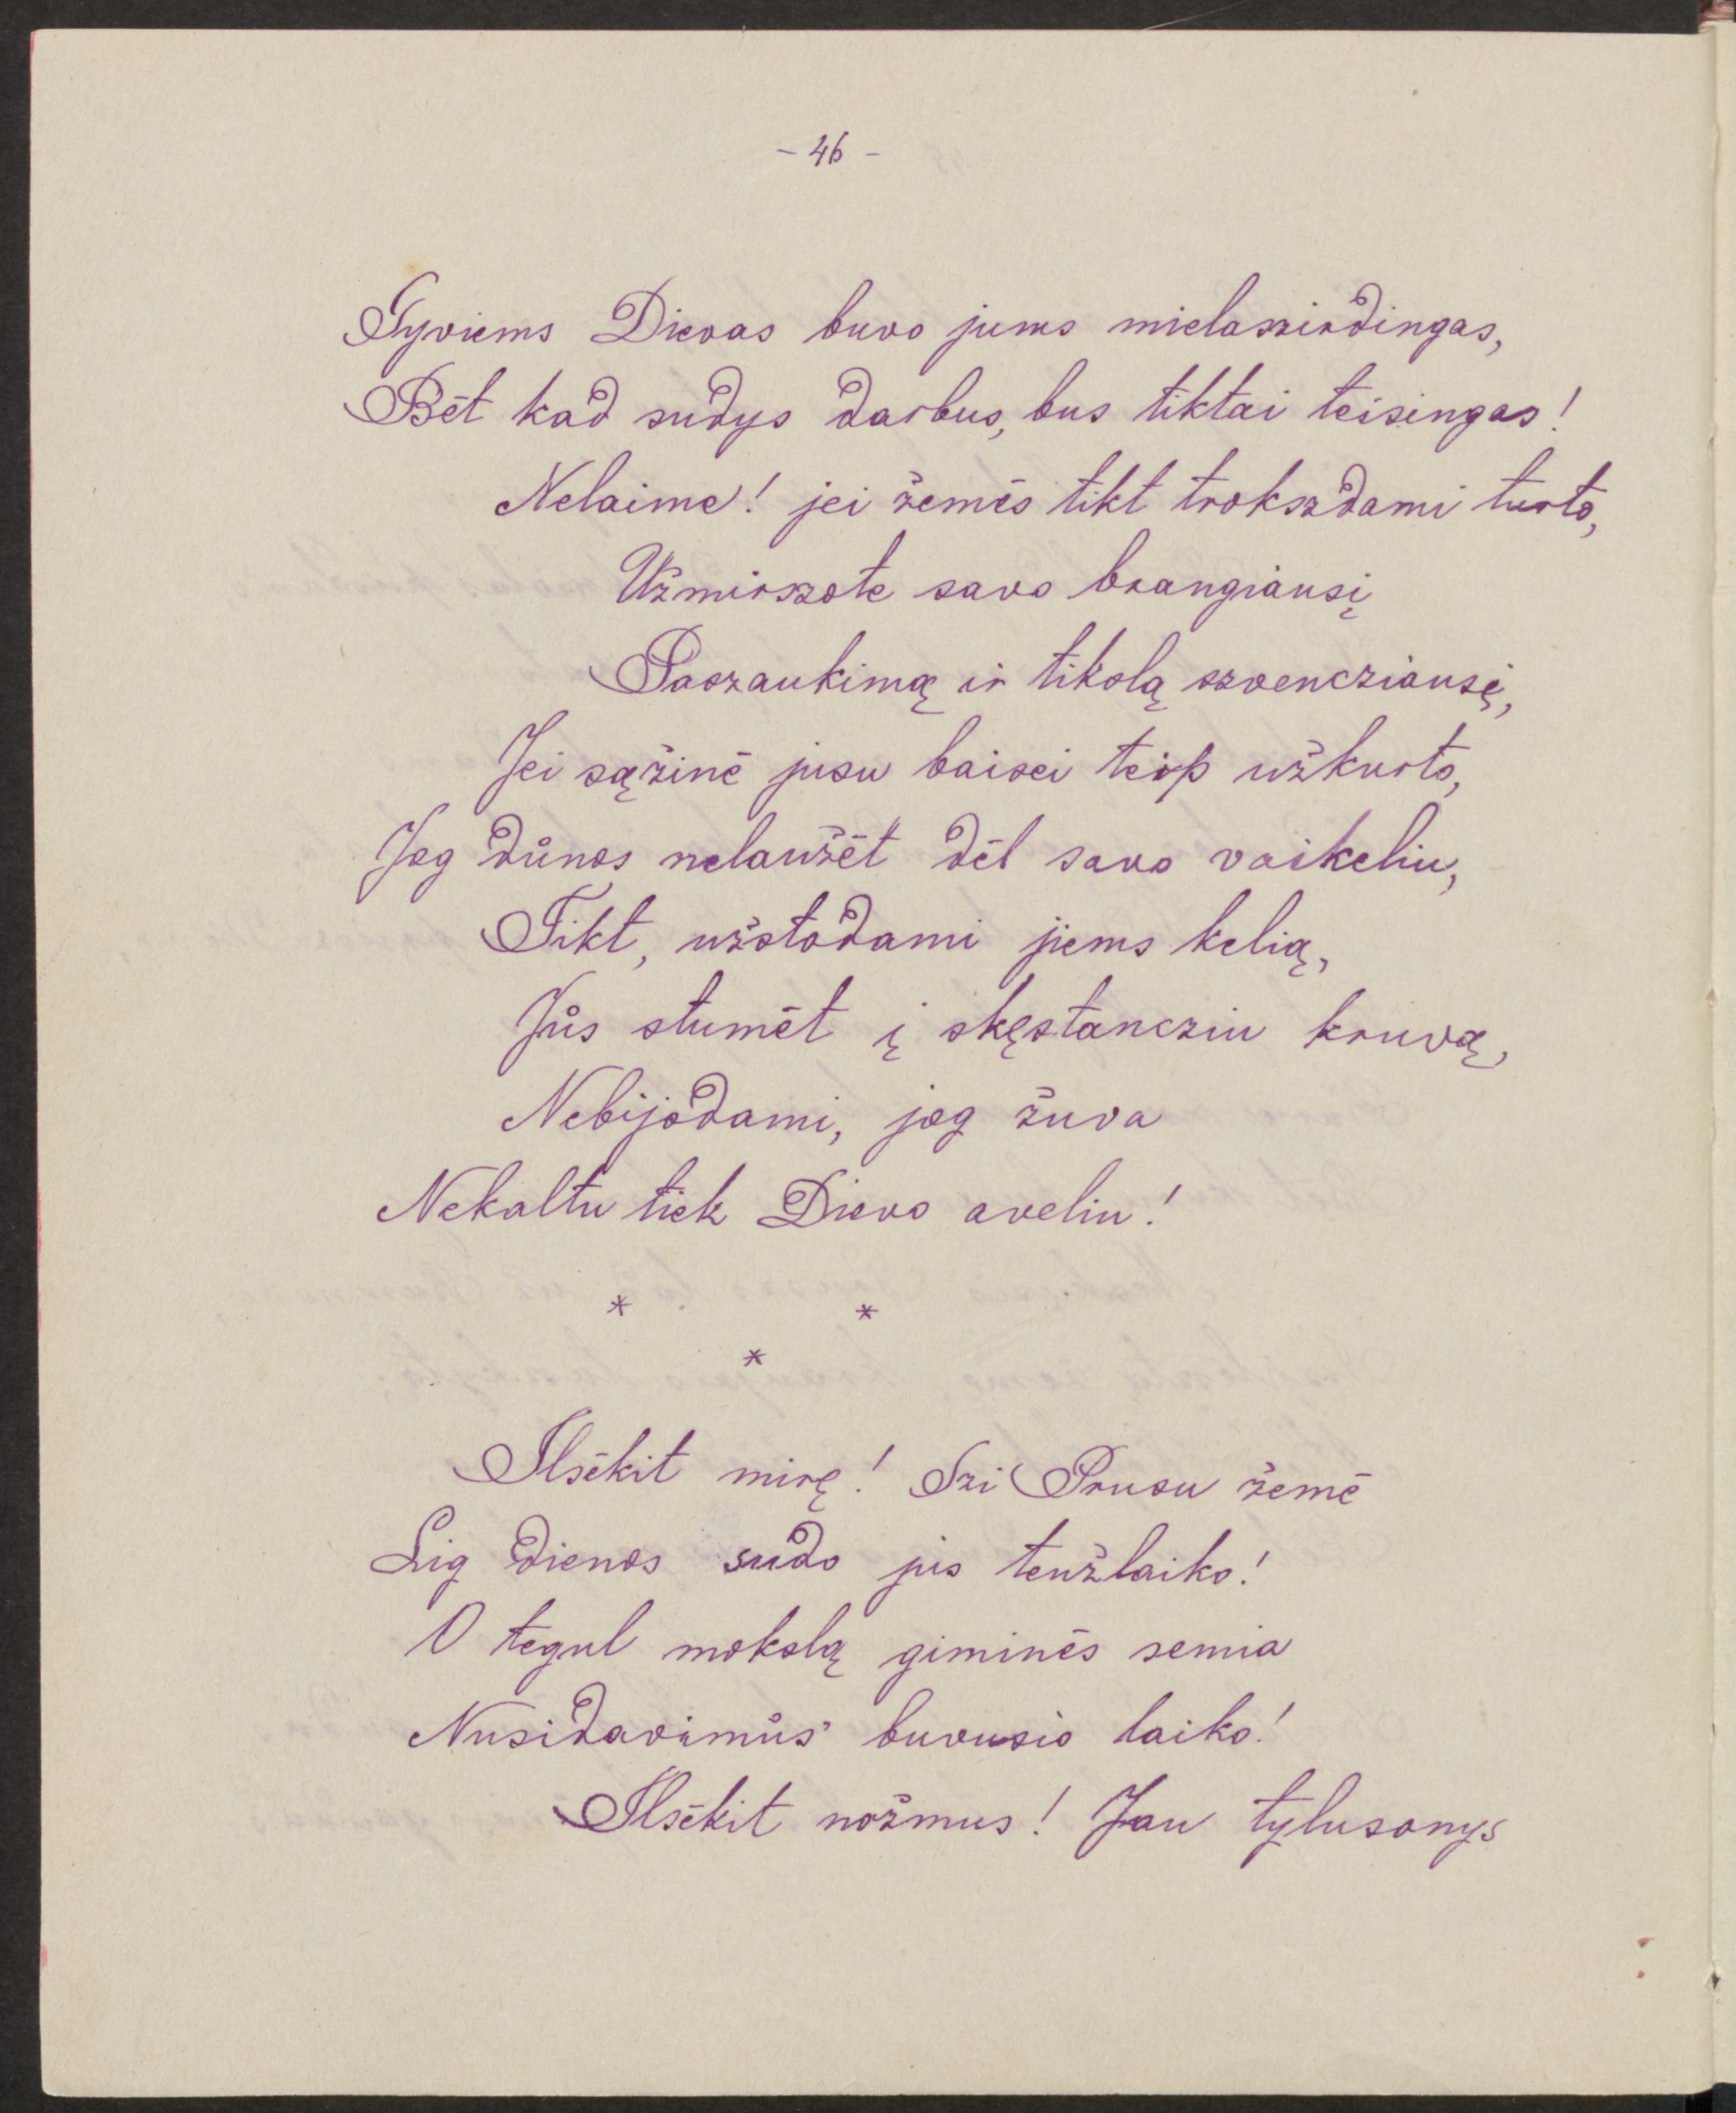 - 46 -
Gyviems Dievas buvo jums mielaszirdingas,
Bėt kad sudys darbus, bus tiktai teisingas!
Nelaime! jei žemės tikt trokszdami turto,
Užmirszote savo brangiausį
Paszaukimą ir tikslą szvencziausę,
Jei sąžinė jusu baisei teip užkurto,
Jog důnos nelaužėt dėl savo vaikeliu,
Tikt, užstodami jiems kelią,
Jůs stumėt į skęstancziu kruvą,
Nebijodami, jog žuva
Nekaltu tiek Dievo aveliu!
* *
*
Ilsėkit mirę! Szi Prusu žemė
Lig dienos sudo jus tenžlaiko!
O tegul mokslą giminės semia
Nusidavimůs buvusio laiko!
Ilsėkit nožmus! Jau tylusonys